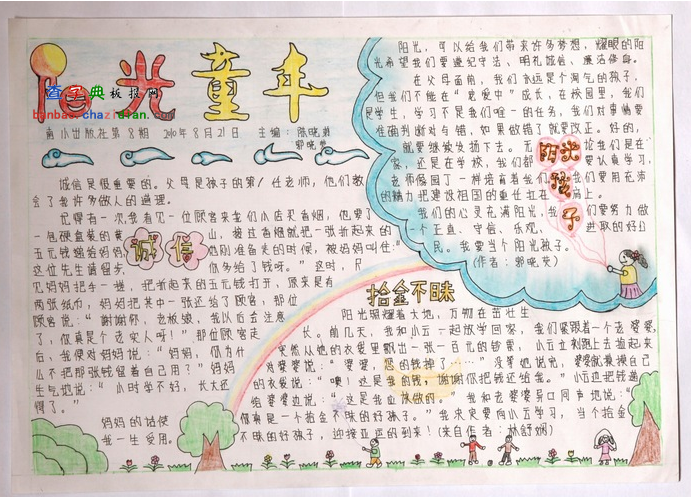 阳光童年
查字典板报网
banbao.chazidian.com
南小出版社第8期 2010年8月21日 主编：陈晓弟
郭晓英
诚信是很重要的。父母是孩子的第1任老师，他们教
会了我许多做人的道理。
记得有一次，我看见一位顾客来生们小店买香烟，他要了
一包硬盒装的黄山，接住香烟就把一张折起来的
五元钱递给妈妈，他刚准备走的时候，被妈妈叫住：“
这位先生请留步，你多给了钱呀。”这时，只
见妈妈把手一摆，把折起来的五元钱打开，原来是有
两张纸币，妈妈把其中一张还给了顾客，那位
顾客说：“谢谢你，老板娘，我以后会注意
了，你真是个老实人呀！”那位顾客走
后，我便对妈妈说：“妈妈，你为什
么不把那张钱留着自己用？”妈妈
生气地说：“小时学不好，长大还
得了。”
妈妈的话使
我一生受用。
诚信
阳光，可以给我们带来许多梦想，耀眼的阳
光希望我们要遵纪守法、明礼诚信、廉洁修身。
在父母面前，我们永远是个淘气的孩子，
但我们不能在“宠爱中”成长，在校园里，我们
是学生，学习不是我们唯一的任务，我们对事情要
准确判断对与错，如果做错了就要改正。好的，
就要继续发扬下去。无论我们是在
家，还是在学校，我们都要认真学习，
老师像园丁一样培育着我们，我们要用充沛
的精力把建设祖国的重任扛在肩上。
我们的心灵充满阳光，我们要努力做
一个正直、守信、乐观、进取的好公
民。我要当个阳光孩子。
（作者：郭晓英）
阳光孩子
拾金不昧
阳光照耀着大地，万物在茁壮生
长。前几天，我和小云一起放学回家，我们紧跟着一个老婆婆，
突然从她的衣袋里飘出一张一百元的钞票，小云立刻跑上去捡起来
对婆婆说：“婆婆，您的钱掉了……”没等她说完，婆婆就摸摸自己
的衣袋说：“噢！这是我的钱，谢谢你把钱还给我。”小云边把钱递
给婆婆边说：“这是我应该做的。”我和老婆婆异口同声地说：“
你真是一个拾金不昧的好孩子。”我决定要向小云学习，当个拾金
不昧的好孩子，迎接亚运的到来！（来自作者：林舒娴）